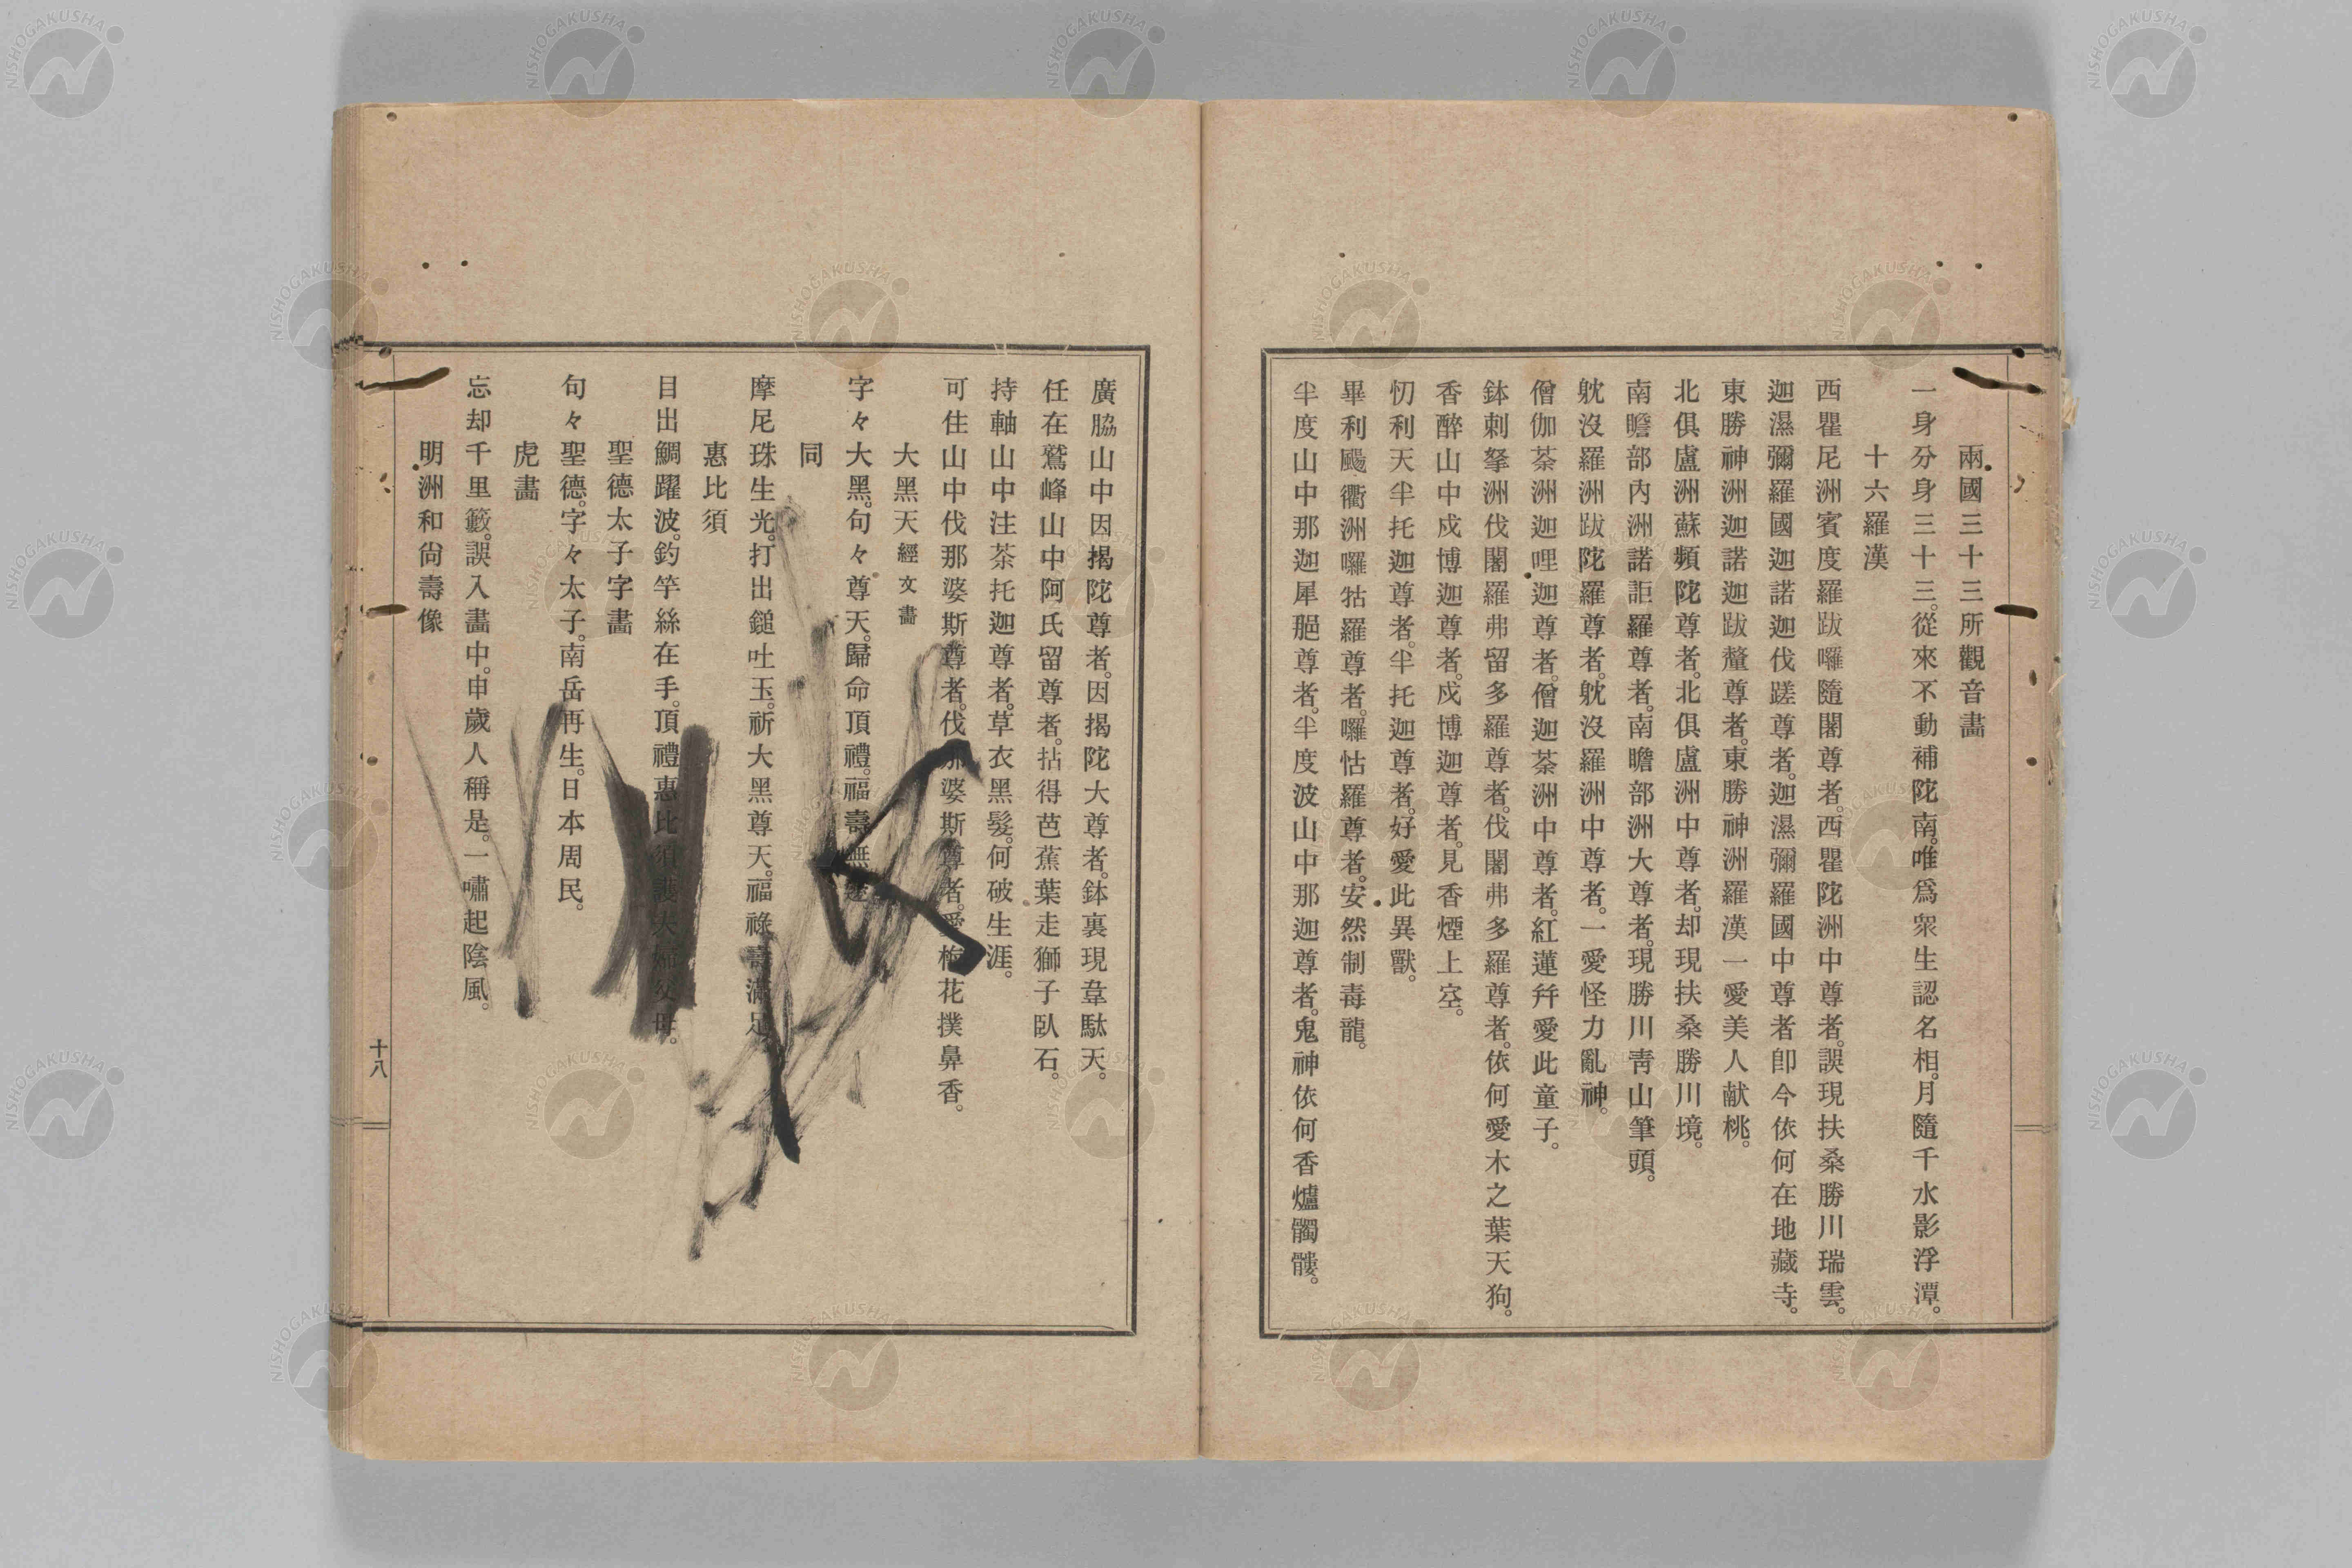 兩國三十三所觀音畫
一身分身三十三。從來不動補陀南。唯爲衆生認名相。月隨千水影浮潭。
十六羅漢
西瞿尼洲賓度羅跋囉隨闍尊者。西瞿陀洲中尊者。誤現扶桑勝川瑞雲。
迦濕彌羅國迦諾迦伐蹉尊者。迦濕彌羅國中尊者卽今依何在地藏寺。
東勝神洲迦諾迦跋釐尊者。東勝神洲羅漢一愛美人献桃。
北俱盧洲蘇頻陀尊者。北俱盧洲中尊者。却現扶桑勝川境。
南瞻部內洲諾詎羅尊者。南瞻部洲大尊者。現勝川靑山筆頭。
躭沒羅洲跋陀羅尊者。躭沒羅洲中尊者。一愛怪力亂神。
僧伽荼洲迦哩迦尊者。僧迦荼洲中尊者。紅蓮幷愛此童子。
鉢刺拏洲伐闍羅弗留多羅尊者。伐闍弗多羅尊者。依何愛木之葉天狗。
香醉山中戍博迦尊者。戍博迦尊者。見香煙上空。
忉利天半托迦尊者。半托迦尊者。好愛此異獸。
畢利颺衢洲囉怙羅尊者。囉怙羅尊者。安然制毒龍。
半度山中那迦犀尊者。半度波山中那迦尊者。鬼神依何香爐髑髏。
廣脇山中因揭陀尊者。因揭陀大尊者。鉢裏現韋駄天。
任在鷲峰山中阿氏留尊者。拈得芭蕉葉走獅子臥石。
持軸山中注荼托迦尊者。草衣黑髮。何破生涯。
可住山中伐那婆斯尊者。伐那婆斯尊者。愛梅花撲鼻香。
大黑天經文畵
字々大黑。句々尊天。歸命頂禮。福壽無邊。
同
摩尼珠生光。打出鎚吐玉。祈大黑尊天。福祿壽滿足
惠比須
目出鯛躍波。釣竿絲在手。頂禮惠比須護夫婦父母。
聖德太子字畵
句々聖德。字々太子。南岳再生。日本周民。
虎畵
忘却千里籔。誤入畵中。申歲人稱是。一嘯起陰風。
明洲和尙壽像
十八
NISHOGAKUSHA